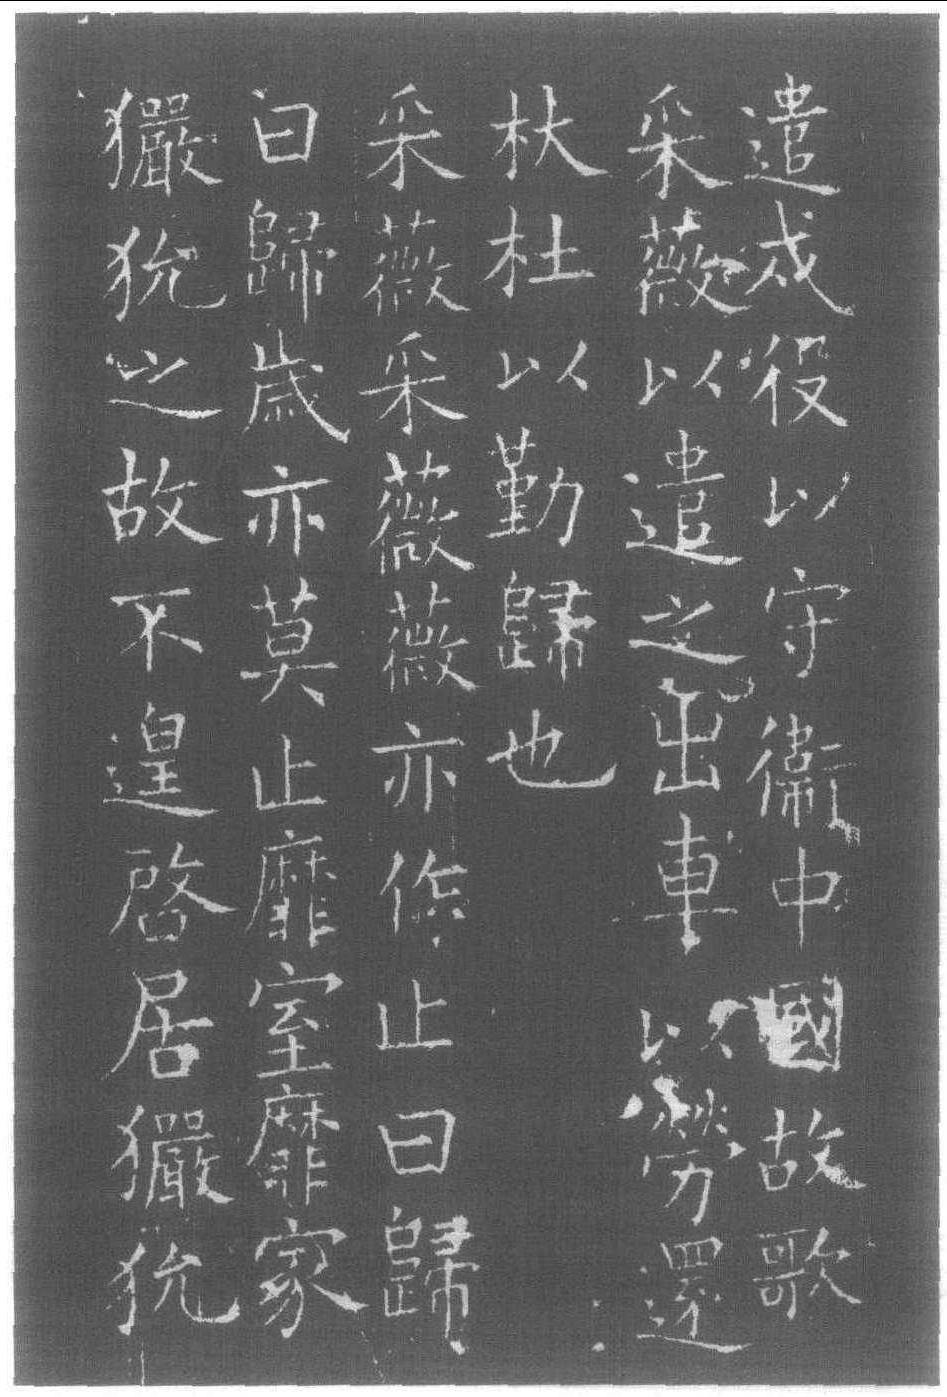 遣戍役以守衞中國故歌
采薇以遣之出車以勞還
杕杜以勤歸也
采薇采薇薇亦作止曰歸
曰歸歲亦莫止靡室靡家
玁狁之故不遑啓居玁狁